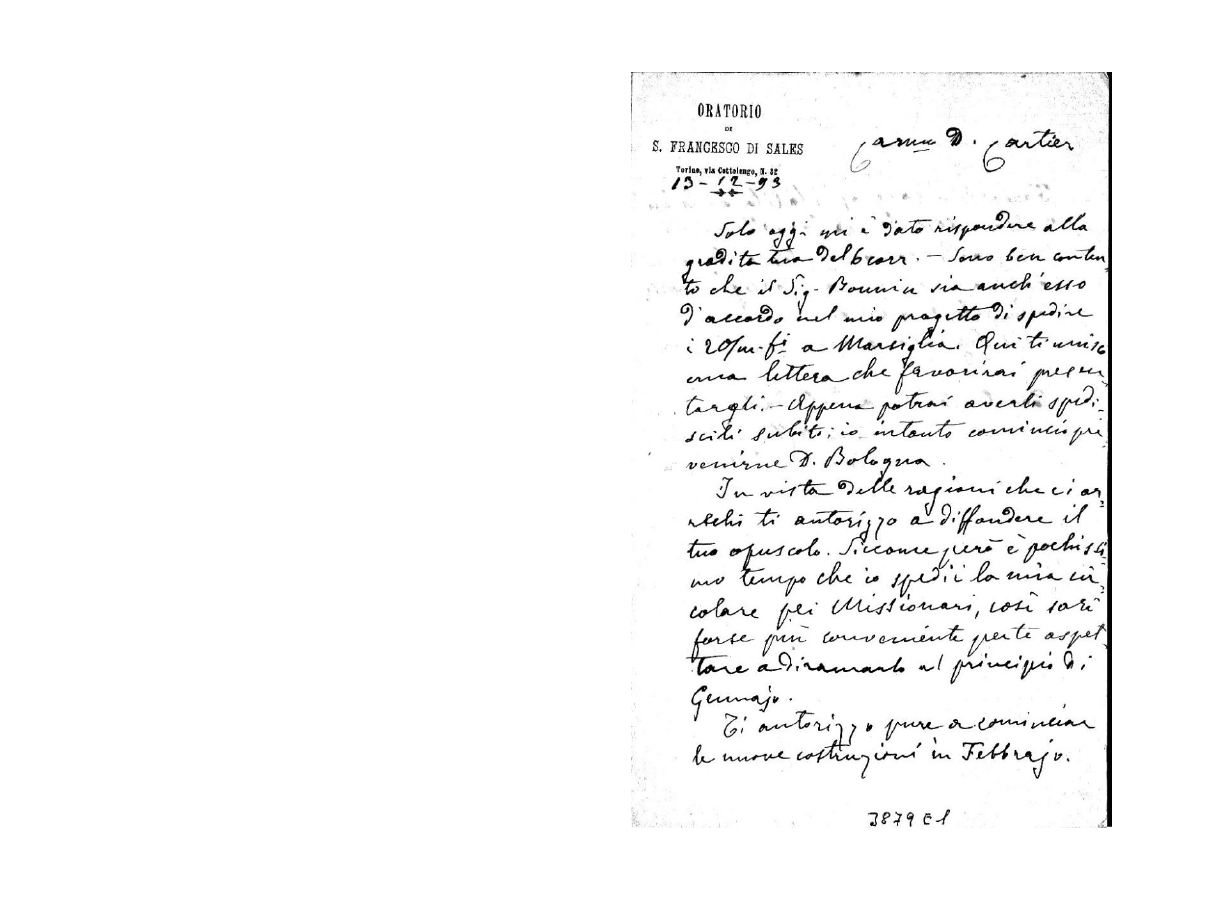 ORATORIO
DI
S. FRANCESCO DI SALES
Torino, via Cottolengo, N. 32
13-12-93
Carmo D. Cartier
Solo oggi mi è dato rispondere alla
gradita tua del 6 corr. – Sono ben conten
to che il Sig. Bonnin sia anch'esso
d'accordo nel mio progetto di spedire
i 20/m. fi a Marsiglia. Qui ti unisco
una lettera che favorirai presen
targli. – Appena potrai averli spedi-
scili subito; io intanto comincio pre
venirne D. Bologna.
In vista delle ragioni che ci ar-
rechi ti autorizzo a diffondere il
tuo opuscolo. Siccome però è pochissi
mo tempo che io spedii la mia cir-
colare pei Missionari, così sarà
forse più conveniente per te aspet
tare a diramarlo al principio di
Gennajo.
Ti autorizzo pure a cominciar
le nuove costruzioni in Febbrajo.
3879 E 1